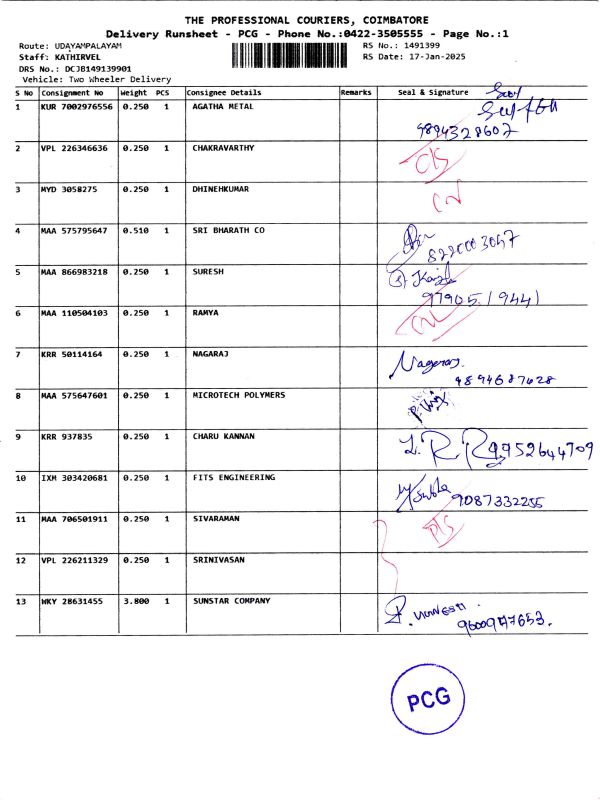 THE PROFESSIONAL COURIERS, COIMBATORE
Delivery Runsheet - PCG - Phone No.:0422-3505555 - Page No.:1
Route: UDAYAMPALAYAM RS No.: 1491399
Staff: KATHIRVEL RS Date: 17-Jan-2025
DRS No.: DCJB149139901
Vehicle: Two Wheeler Delivery
S No Consignment No Weight PCS Consignee Details Remarks Seal & Signature
1 KUR 7002976556 0.250 1 AGATHA METAL
9894328607
2 VPL 226346636 0.250 1 CHAKRAVARTHY
3 MYD 3058275 0.250 1 DHINEHKUMAR
4 MAA 575795647 0.510 1 SRI BHARATH CO
5 MAA 866983218 0.250 1 SURESH
6 MAA 110504103 0.250 1 RAMYA
7 KRR 50114164 0.250 1 NAGARAJ
Nagaraj
8 MAA 575647601 0.250 1 MICROTECH POLYMERS
9 KRR 937835 0.250 1 CHARU KANNAN
9952644709
10 IXM 303420681 0.250 1 FITS ENGINEERING
9087332255
11 MAA 706501911 0.250 1 SIVARAMAN
12 VPL 226211329 0.250 1 SRINIVASAN
13 WKY 28631455 3.800 1 SUNSTAR COMPANY
PCG